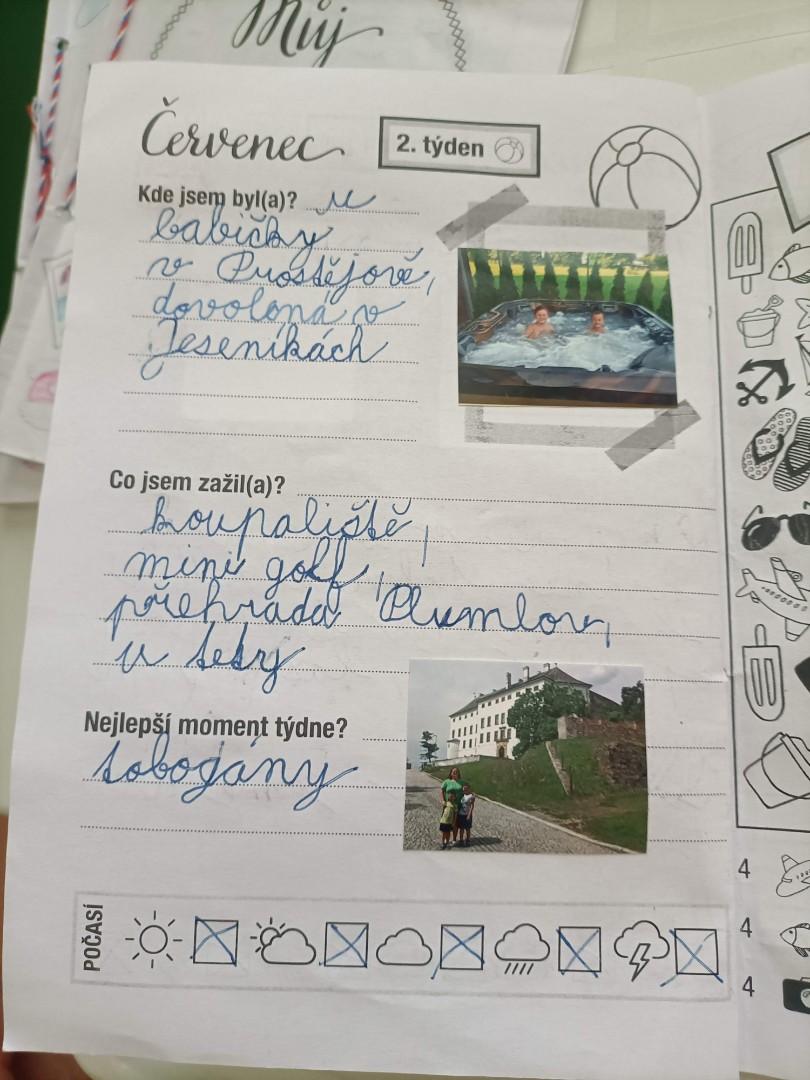 Můj
Červenec
2. týden
Kde jsem byl(a)? u
babičky
v Prostějově,
dovoloná v
Jeseníkách
Co jsem zažil(a)?
koupaliště,
mini golf,
přehrada Plumlov,
u tety
Nejlepší moment týdne?
tobogány
POČASÍ
4
4
4